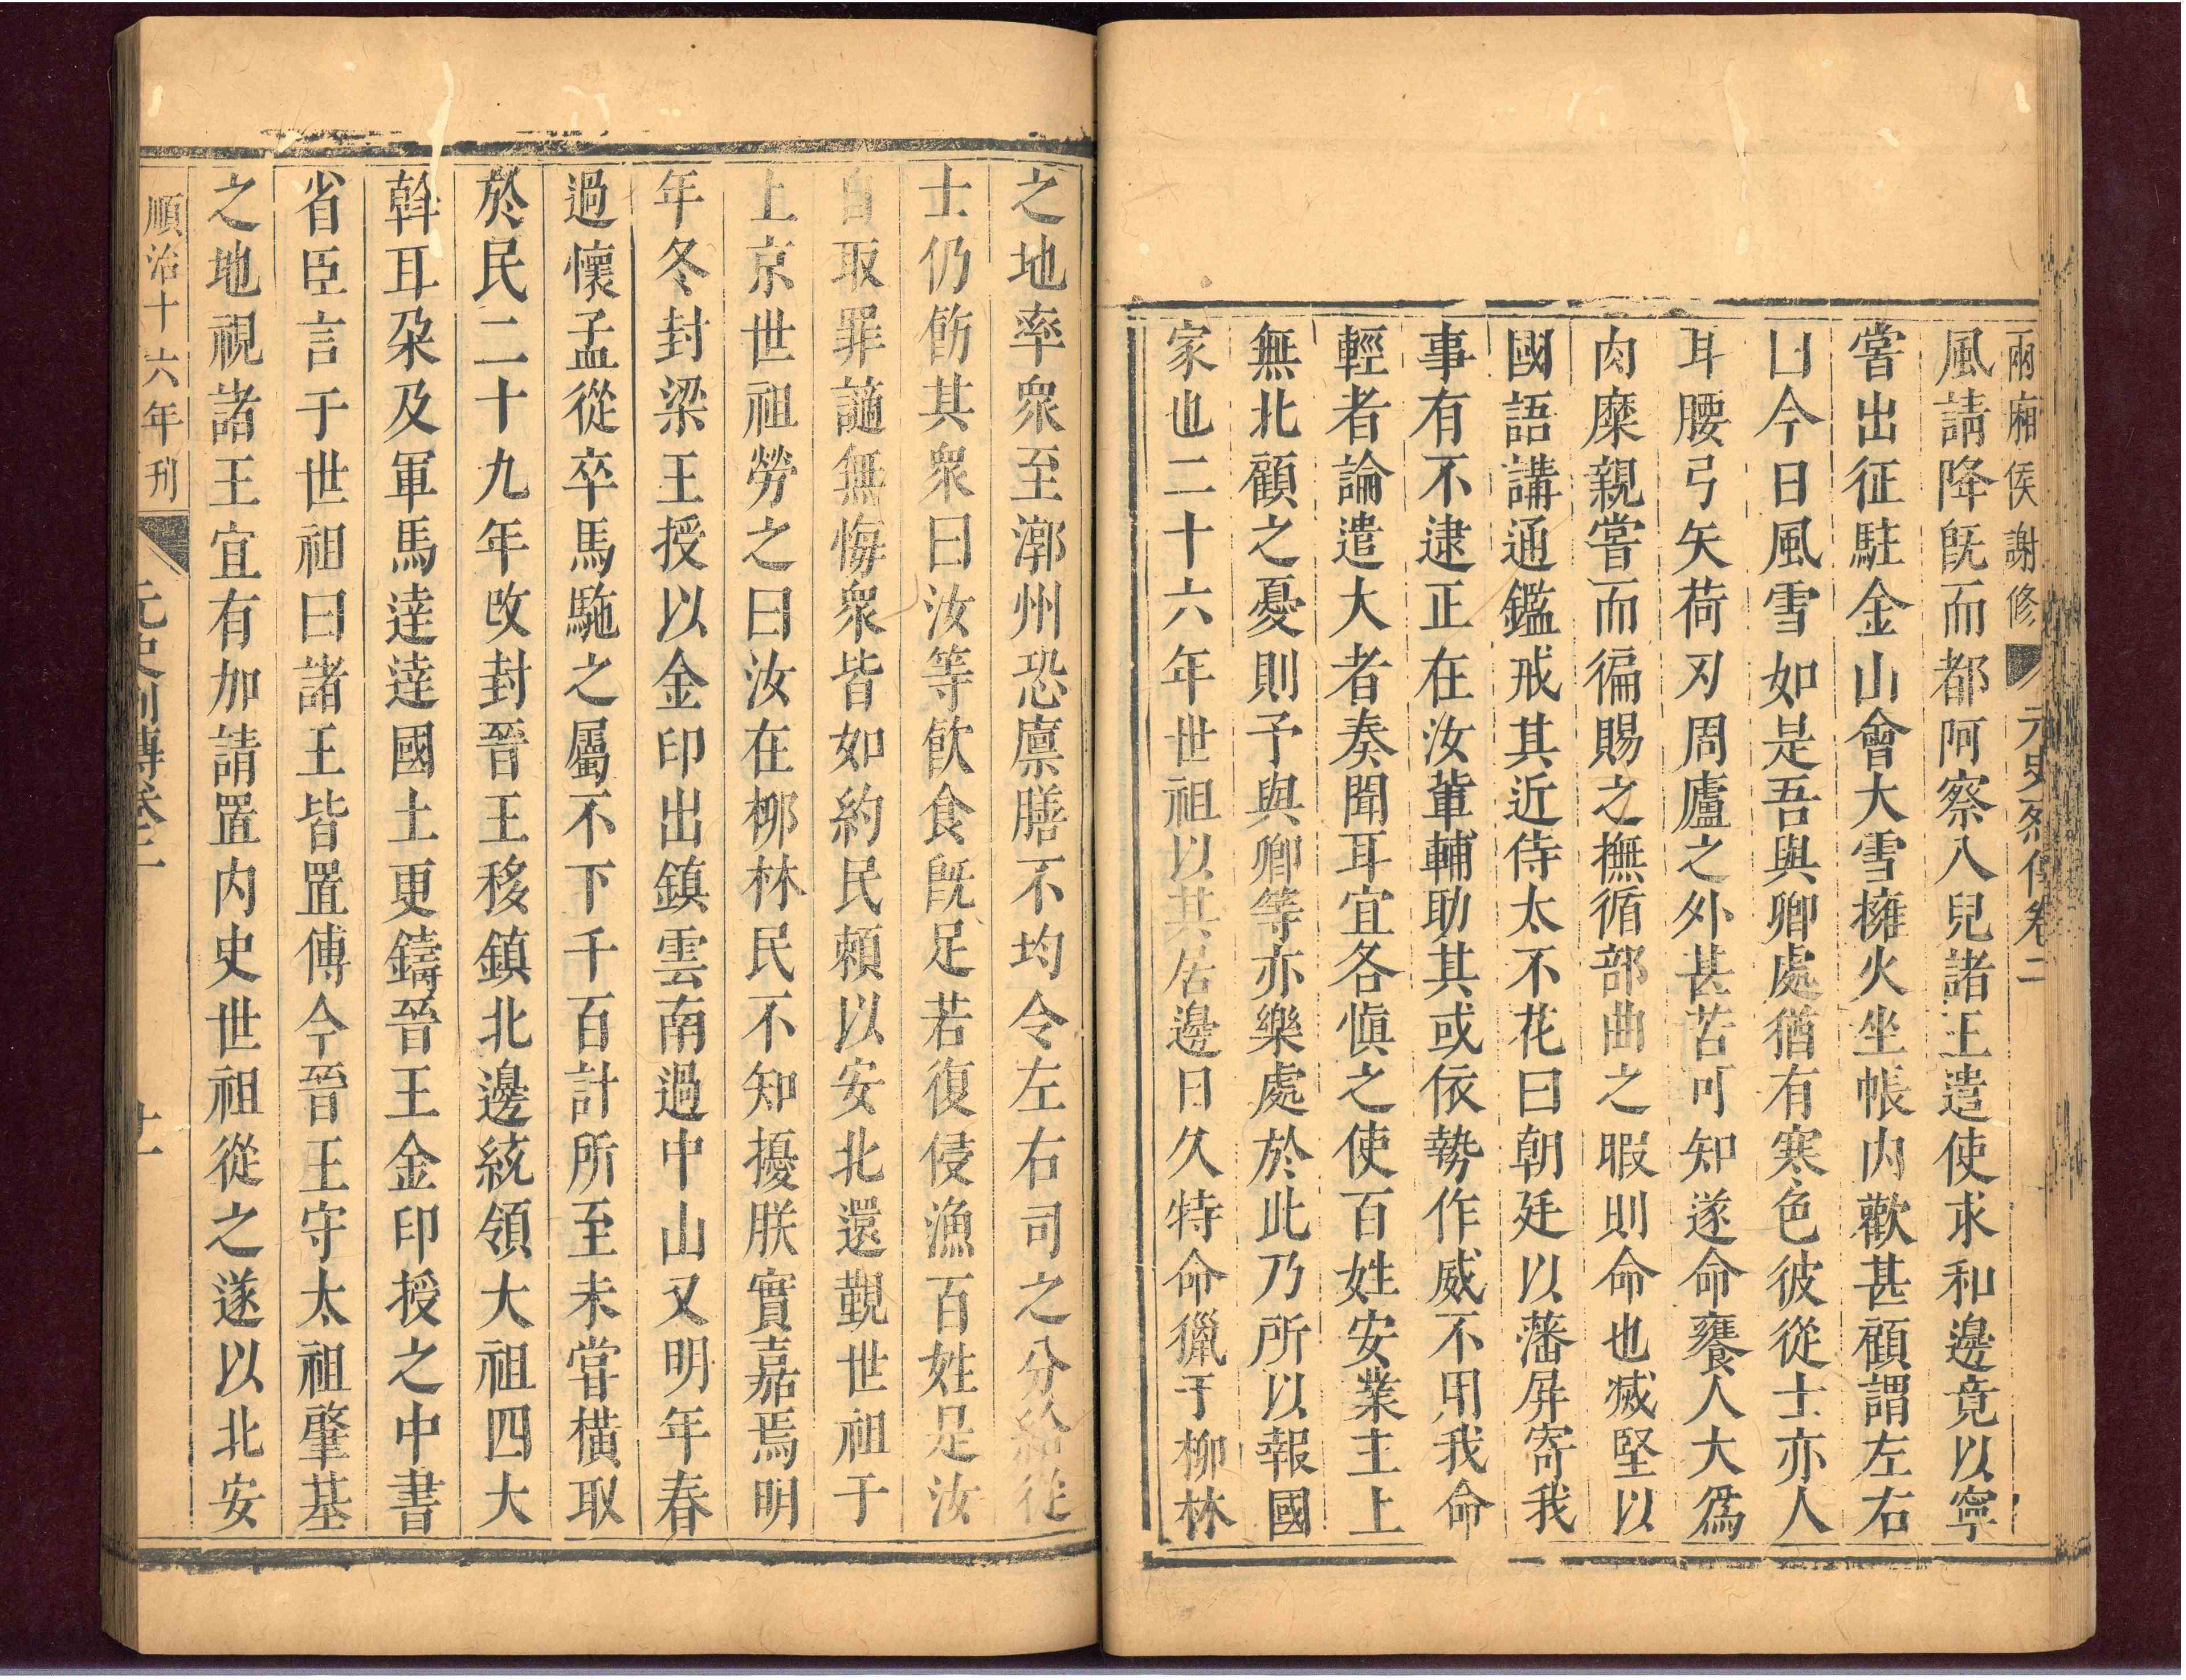 兩廂侯謝修 元史列傳卷二
風請降旣而都阿察八兒諸王遣使求和邊竟以寧
嘗出征駐金山會大雪擁火坐帳內歡甚顧謂左右
曰今日風雪如是吾與卿處猶有寒色彼從士亦人
耳腰弓矢荷刃周廬之外甚苦可知遂命饔人大爲
肉糜親嘗而徧賜之撫循部曲之暇則命也滅堅以
國語講通鑑戒其近侍太不花曰朝廷以藩屏寄我
事有不逮正在汝輩輔助其或依勢作威不用我命
輕者論遣大者奏聞耳宜各愼之使百姓安業主上
無北顧之憂則予與卿等亦樂處於此乃所以報國
家也二十六年世祖以其居邊日久特命獵于柳林
之地率衆至漷州恐廩膳不均令左右司之分給從
士仍飭其衆曰汝等飮食旣足若復侵漁百姓是汝
自取罪謫無悔衆皆如約民賴以安北還覲世祖于
上京世祖勞之曰汝在柳林民不知擾朕實嘉焉明
年冬封梁王授以金印出鎮雲南過中山又明年春
過懷孟從卒馬駞之屬不下千百計所至未嘗橫取
於民二十九年改封晉王移鎮北邊統領大祖四大
斡耳朶及軍馬達達國土更鑄晉王金印授之中書
省臣言于世祖曰諸王皆置傅今晉王守太祖肇基
之地視諸王宜有加請置內史世祖從之遂以北安
順治十六年刊 元史列傳卷二 廿一